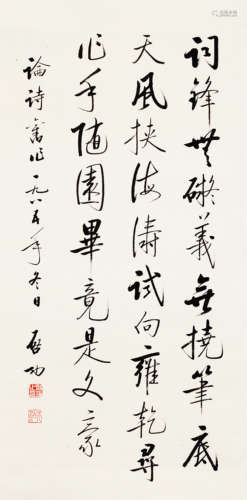 词锋无碍义无挠笔底
天风挟海涛试向雍乾寻
作手随园毕竟是文豪
論诗旧作一九八五年冬日
启功